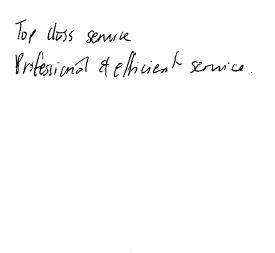 Top class service
Professional & efficient service.